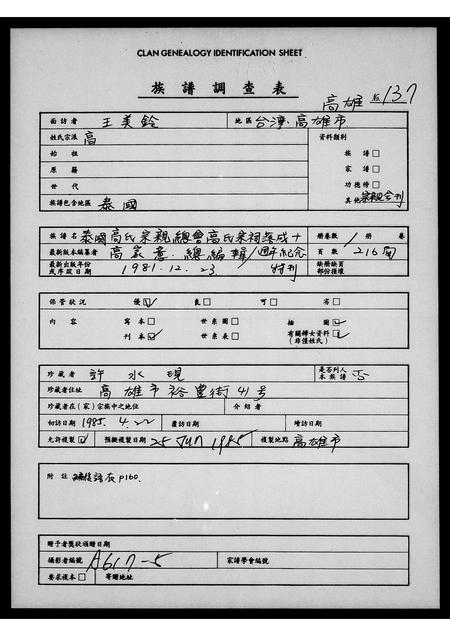 CLAN GENEALOGY IDENTIFICATION SHEET
族譜調查表
高雄 No. 137
面訪者 王美銓 地區 台灣.高雄市
姓氏宗派 高 資料類別
始祖 族譜□
原籍 家譜□
世代 功德榜□
族譜包含地區 泰國 其他 宗親會刊
族譜名 泰國高氏宗親總會高氏宗祠落成十 冊卷數 / 冊 卷
最新版本編纂者 高 意.總編輯 週年紀念 頁數 216面
最新出版年份 1981.12.23. 特刊 缺冊缺頁
或序跋日期 部份損壞
保管狀況 優☑ 良□ 可□ 劣□
內容 寫本□ 世系圖□ 插圖☑
刊本☑ 世系表□ 有關婦女資料☑
(非僅姓氏)
珍藏者 許水現 是否列入本族譜 否
珍藏者住址 高雄市裕豐街41号
珍藏者在(家)宗族中之地位 介紹者
初訪日期 1985. 4. 22 覆訪日期 增訪日期
允許複製☑ 預擬複製日期 25 JUN 1985 複製地點 高雄市
附註 編後語在p160.
贈予者獎狀頒贈日期
攝影者編號 A617-5 家譜學會編號
要求複本□ 寄贈地址